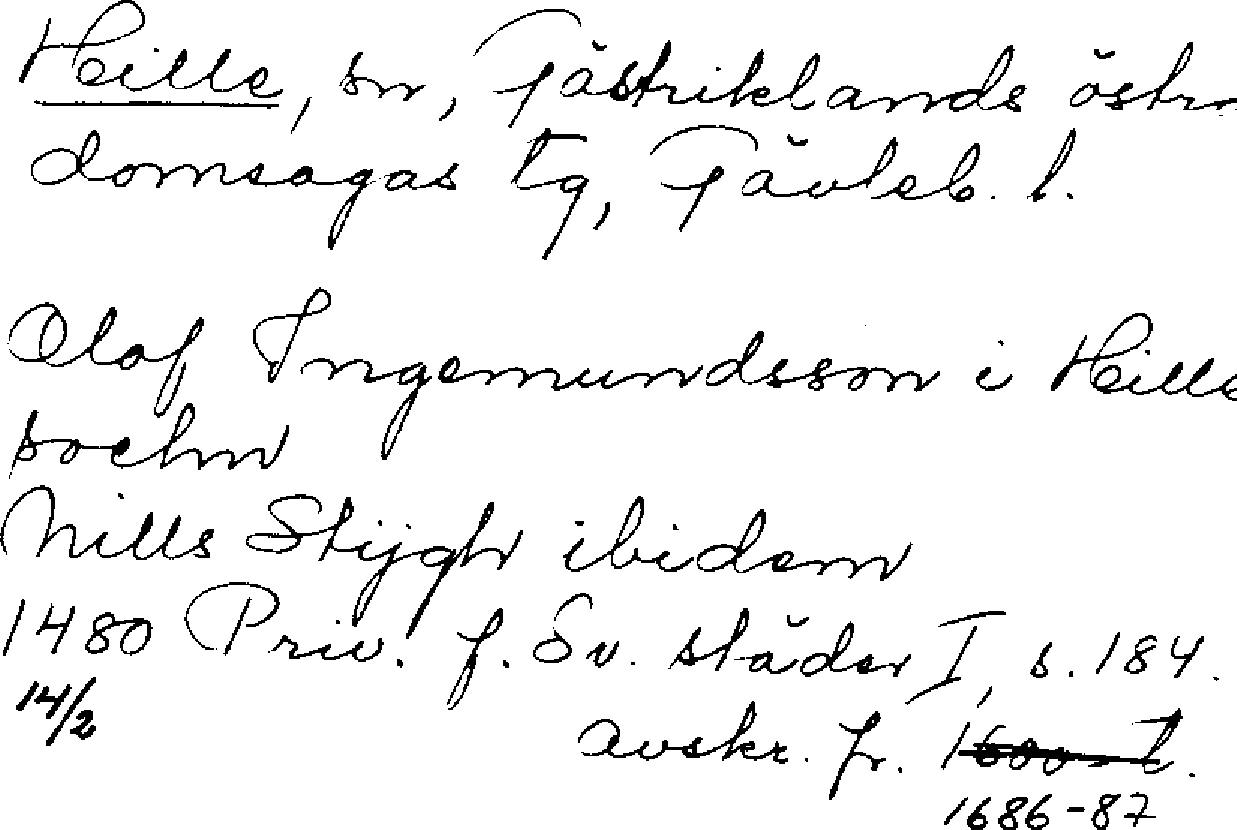 Hille, sn, Gästriklands östra
domsagas tg, Gävleb. l.
Olof Ingemundsson i Hille
sochn
Nills Stijgh ibidem
1480 Priv. f. Sv. städer I, s. 184.
14/2
avskr. fr. 1600-t.
1686-87